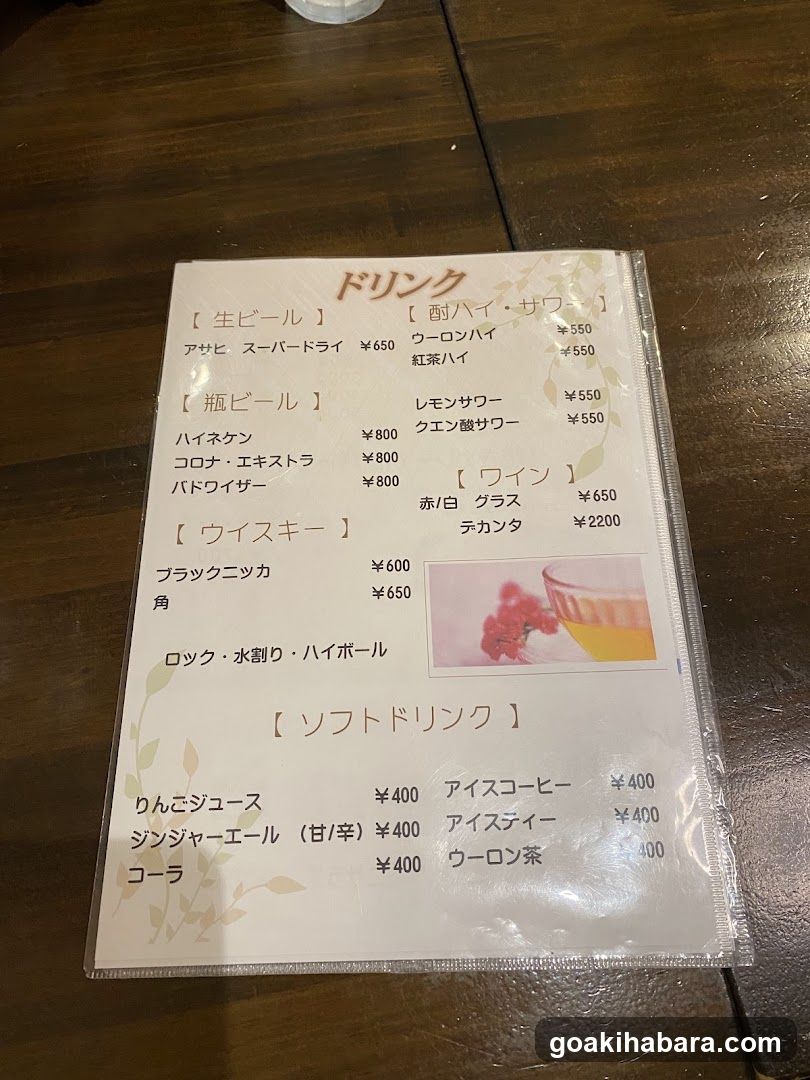 ドリンク
【 生ビール 】
アサヒ スーパードライ ¥650
【 瓶ビール 】
ハイネケン ¥800
コロナ・エキストラ ¥800
バドワイザー ¥800
【 ウイスキー 】
ブラックニッカ ¥600
角 ¥650
ロック・水割り・ハイボール
【 酎ハイ・サワー 】
ウーロンハイ ¥550
紅茶ハイ ¥550
レモンサワー ¥550
クエン酸サワー ¥550
【 ワイン 】
赤/白 グラス ¥650
デカンタ ¥2200
【 ソフトドリンク 】
りんごジュース ¥400
ジンジャーエール (甘/辛) ¥400
コーラ ¥400
アイスコーヒー ¥400
アイスティー ¥400
ウーロン茶 ¥400
goakihabara.com